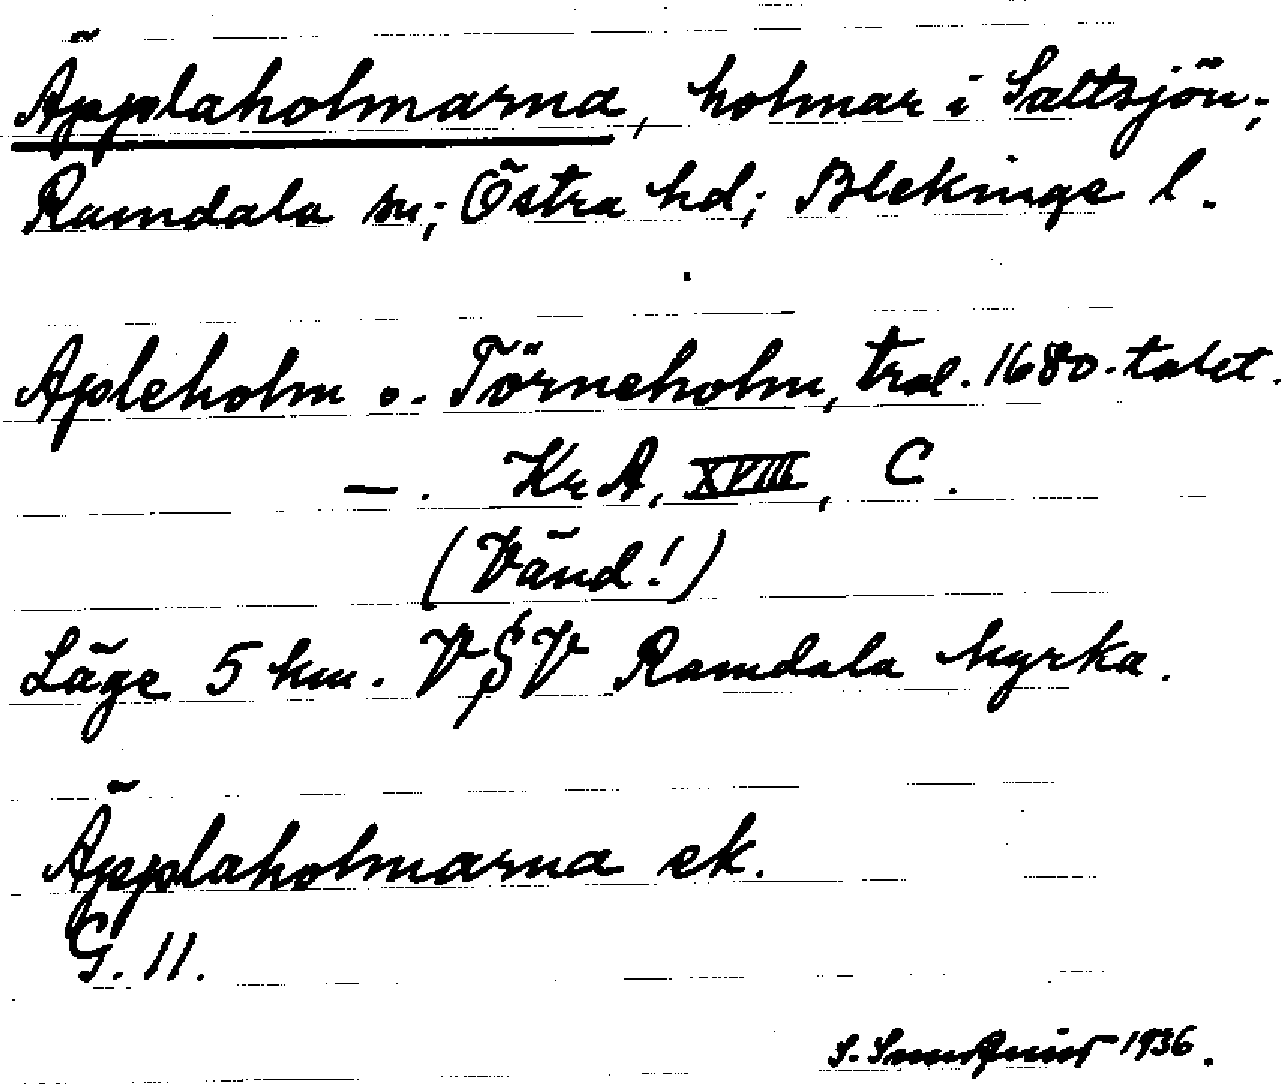 Äpplaholmarna, holmar i Saltsjön;
Ramdala sn; Östra hd; Blekinge l.
Apleholm o. Törneholm, trol. 1680-talet.
— . KrA, XVIII, C.
(Vänd!)
Läge 5 km. VSV Ramdala kyrka.
Äpplaholmarna ek.
G. 11.
S. Sundquist 1936.